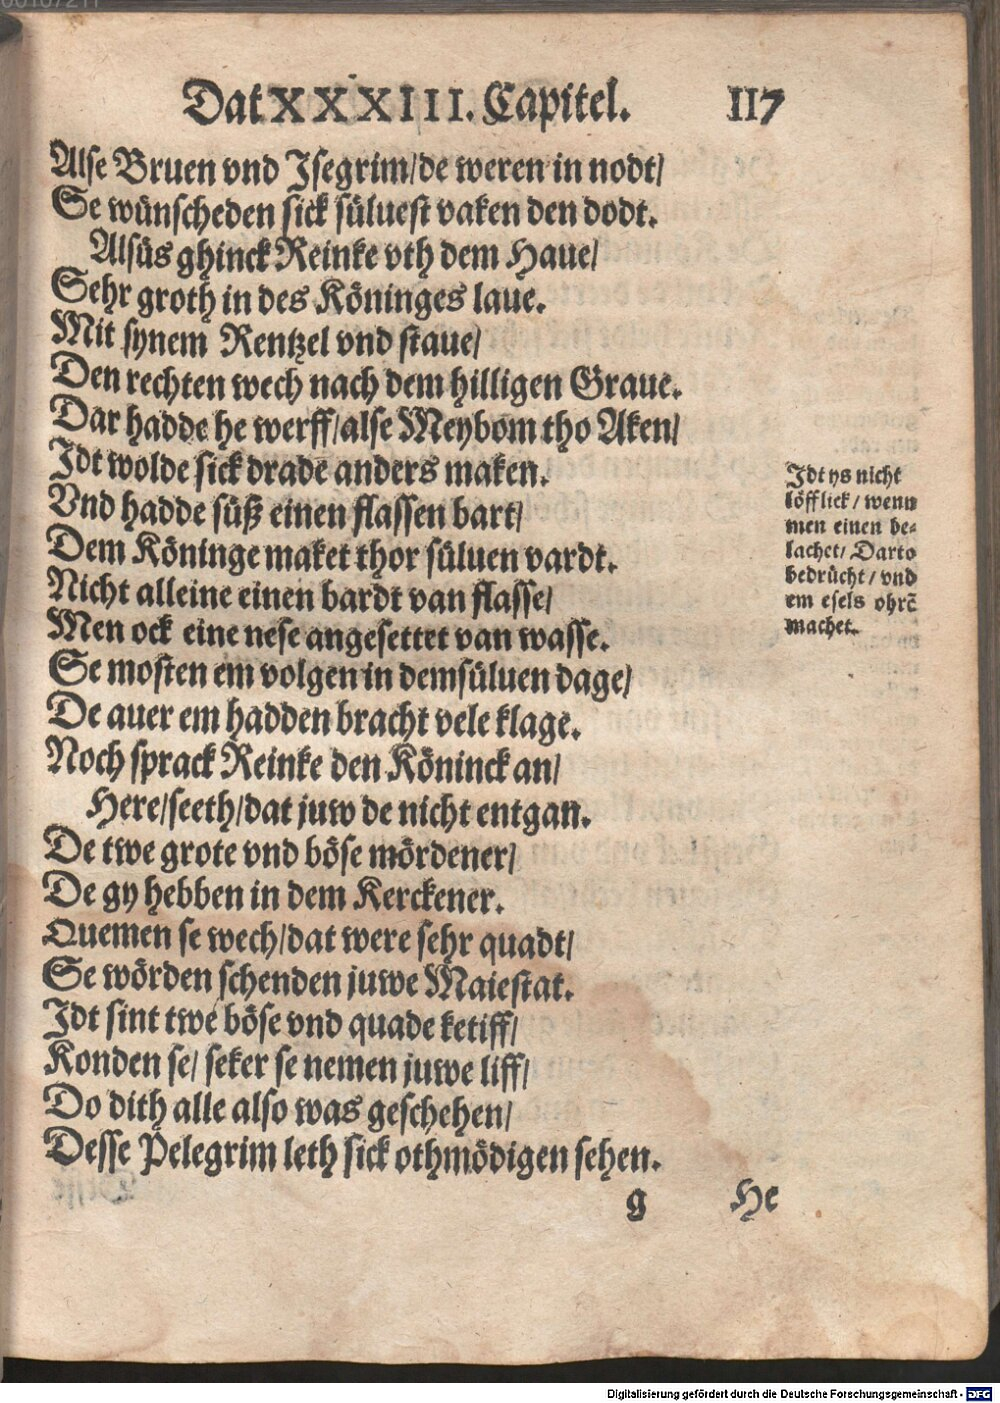 Dat XXXIII. Capitel. 117
Alse Bruen vnd Isegrim/de weren in nodt/
Se wünscheden sick süluest vaken den dodt.
Alsüs ghinck Reinke vth dem Haue/
Sehr groth in des Köninges laue.
Mit synem Rentzel vnd staue/
Den rechten wech nach dem hilligen Graue.
Dar hadde he werff/alse Meybom tho Aken/
Idt wolde sick drade anders maken.
Vnd hadde süß einen flassen bart/
Dem Köninge maket thor süluen vardt.
Nicht alleine einen bardt van flasse/
Men ock eine nese angesettet van wasse.
Se mosten em volgen in demsüluen dage/
De auer em hadden bracht vele klage.
Noch sprack Reinke den Köninck an/
Here/seeth/dat juw de nicht entgan.
De twe grote vnd böse mördener/
De gy hebben in dem Kerckener.
Quemen se wech/dat were sehr quadt/
Se wörden schenden juwe Maiestat.
Idt sint twe böse vnd quade ketiff/
Konden se/ seker se nemen juwe liff/
Do dith alle also was geschehen/
Desse Pelegrim leth sick othmödigen sehen.
g He
Idt ys nicht
löfflick/ wenn
men einen be-
lachet/ Darto
bedrücht/ vnd
em esels ohrē
machet.
Digitalisierung gefördert durch die Deutsche Forschungsgemeinschaft - DFG